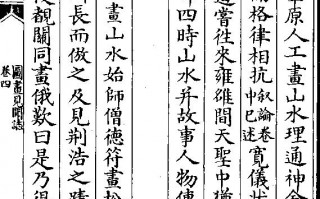 平原人工畫山水理通神會
格律相抗叙論卷中已述寬儀狀
遇嘗往來雍雒間天聖中猶
四時山水并故事人物傳
畫山水始師僧德符畫松
長而倣之及見荊浩之蹟
覩關同畫俄歎曰是乃得
圖畫見聞誌
卷四